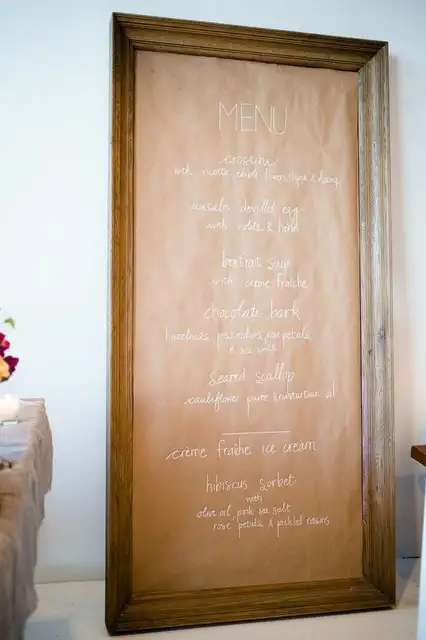 MENU
crostini
with ricotta, edible flowers, thyme & honey
deviled egg
with violets & herbs
beetroot soup
with crème fraîche
chocolate bark
hazelnuts, pistachios, rose petals,
& sea salt
Seared scallop
cauliflower purée & nasturtium oil
crème fraîche ice cream
hibiscus sorbet
with
olive oil, pink sea salt
rose petals & pickled raisins